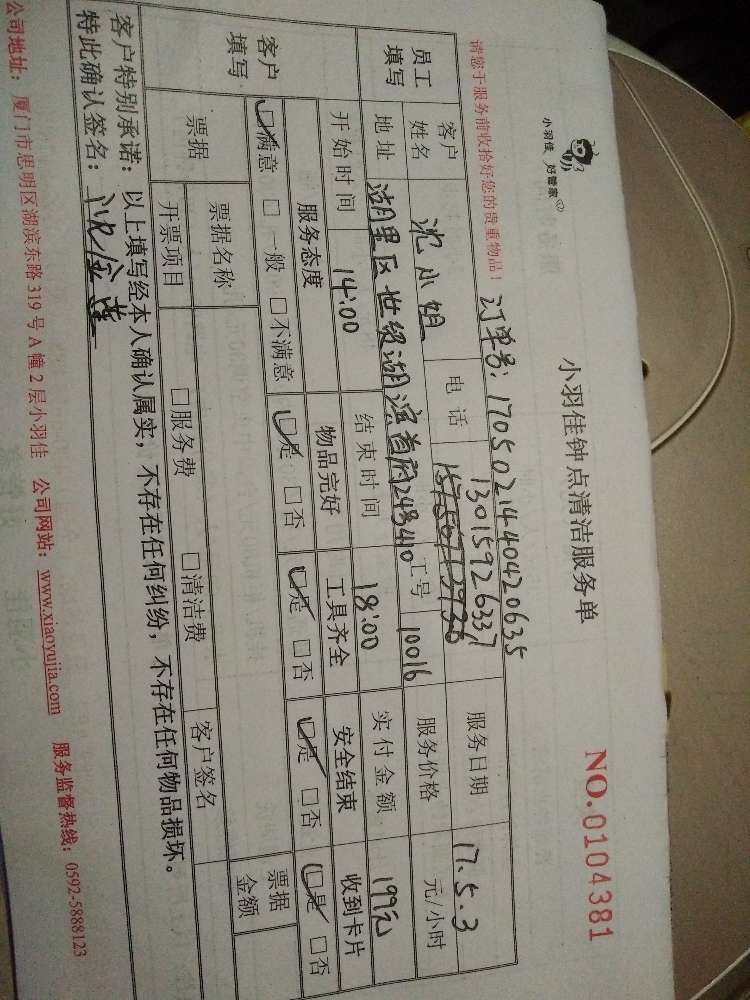 小羽佳 好管家
小羽佳钟点清洁服务单
NO.0104381
请您于服务前收拾好您的贵重物品！
订单号：17050214404420635
员工填写
客户姓名 沈小姐 电话 13015926337 服务日期 17.5.3
地址 湖里区世贸湖滨首府24号410 工号 10016 服务价格 元/小时
开始时间 14:00 结束时间 18:00 实付金额 199元
客户填写
服务态度 物品完好 工具齐全 安全结束 收到卡片
☑满意 □一般 □不满意 ☑是 □否 ☑是 □否 ☑是 □否 ☑是 □否
票据 票据名称 票据金额
开票项目 □服务费 □清洁费 客户签名
客户特别承诺：以上填写经本人确认属实，不存在任何纠纷，不存在任何物品损坏。
特此确认签名：
公司地址：厦门市思明区湖滨东路 319 号 A 幢 2 层小羽佳 公司网站：www.xiaoyujia.com 服务监督热线：0592-5888123